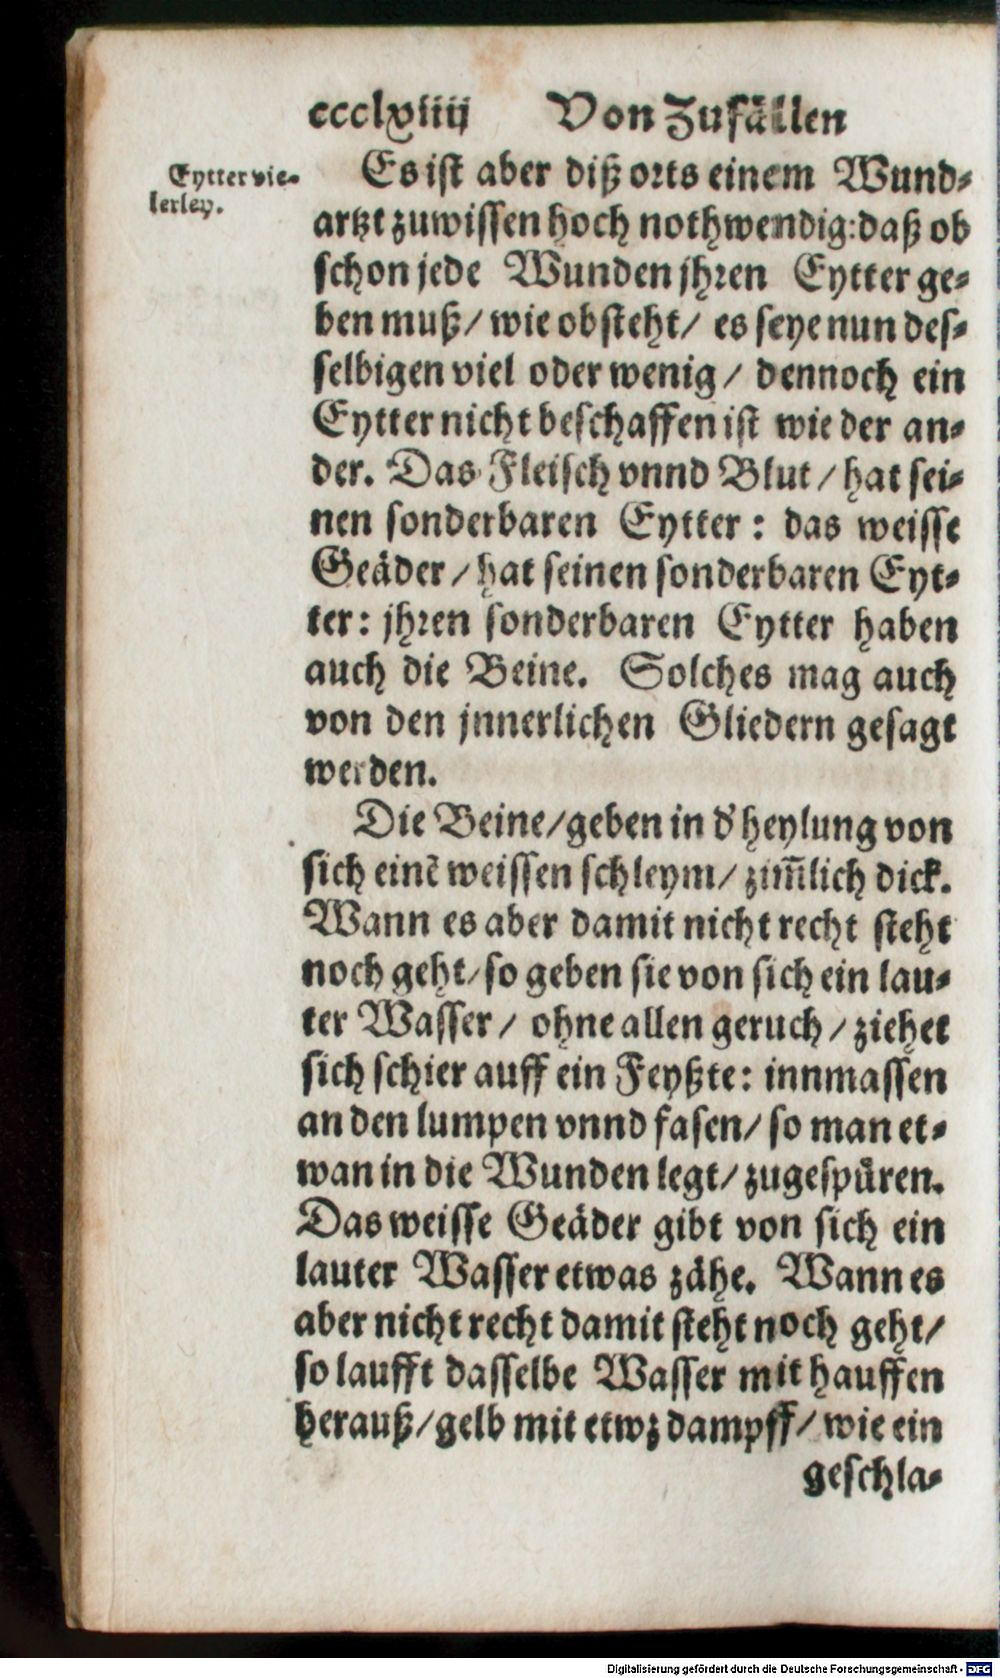 ccclxiiij Von Zufällen
Eytter vie-
lerley.
Es ist aber diß orts einem Wund-
artzt zuwissen hoch nothwendig: daß ob
schon jede Wunden jhren Eytter ge-
ben muß/ wie obsteht/ es seye nun des-
selbigen viel oder wenig/ dennoch ein
Eytter nicht beschaffen ist wie der an-
der. Das Fleisch vnnd Blut/ hat sei-
nen sonderbaren Eytter: das weisse
Geäder/ hat seinen sonderbaren Eyt-
ter: jhren sonderbaren Eytter haben
auch die Beine. Solches mag auch
von den jnnerlichen Gliedern gesagt
werden.
Die Beine/ geben in d' heylung von
sich einē weissen schleym/ zim̃lich dick.
Wann es aber damit nicht recht steht
noch geht/ so geben sie von sich ein lau-
ter Wasser/ ohne allen geruch/ ziehet
sich schier auff ein Feyßte: innmassen
an den lumpen vnnd fasen/ so man et-
wan in die Wunden legt/ zugespüren.
Das weisse Geäder gibt von sich ein
lauter Wasser etwas zähe. Wann es
aber nicht recht damit steht noch geht/
so laufft dasselbe Wasser mit hauffen
herauß/ gelb mit etwz dampff/ wie ein
geschla-
Digitalisierung gefördert durch die Deutsche Forschungsgemeinschaft - DFG